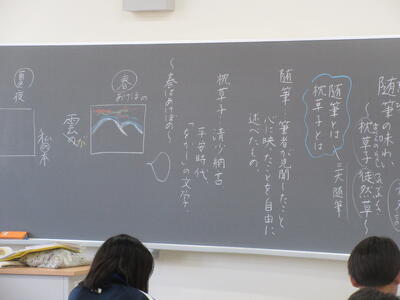 随筆の味わい
〜枕草子 徒然草〜
三大随筆
随筆とは
枕草子とは
随筆 筆者が見聞したこと
心に映ったことを自由に
述べたもの。
枕草子 清少納言
平安時代、
「をかし」の文学。
〜春はあけぼの〜
春
あけぼの
雲
夏
夜